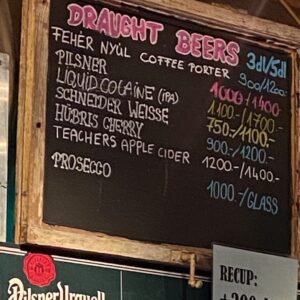 DRAUGHT BEERS 3dl/5dl
FEHÉR NYÚL COFFEE PORTER 900/1200.-
PILSNER 1000/1400
LIQUID COCAINE (IPA) 1100.-/1700.-
SCHNEIDER WEISSE 750.-/1100.-
HÜBRIS CHERRY 900.-/1200.-
TEACHERS APPLE CIDER 1200.-/1400.-
PROSECCO 1000.-/GLASS
Pilsner Urquell
RECUP: